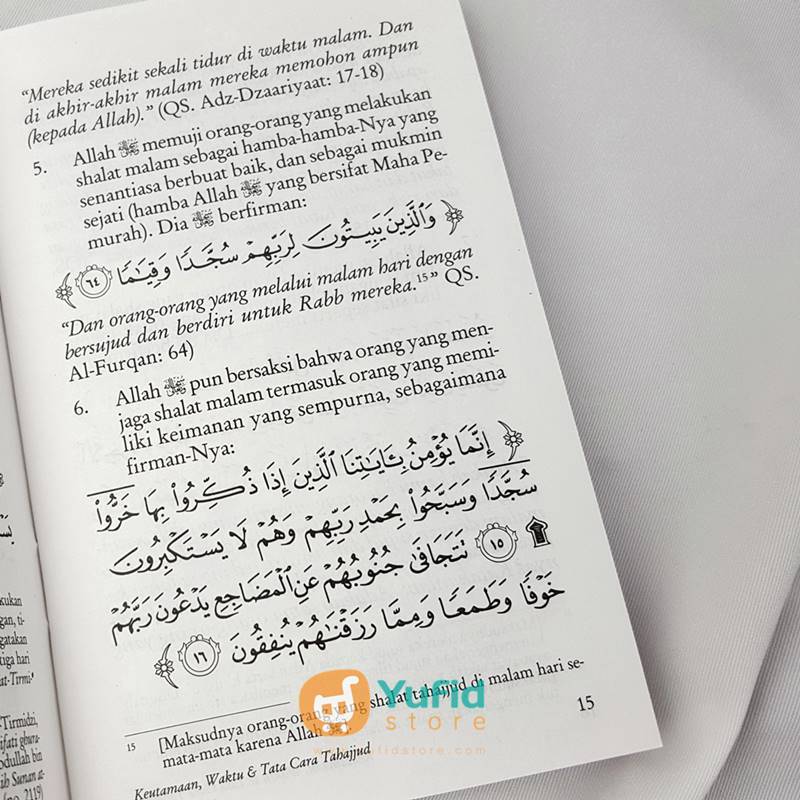 “Mereka sedikit sekali tidur di waktu malam. Dan
di akhir-akhir malam mereka memohon ampun
(kepada Allah).” (QS. Adz-Dzaariyaat: 17-18)
5. Allah ﷻ memuji orang-orang yang melakukan
shalat malam sebagai hamba-hamba-Nya yang
senantiasa berbuat baik, dan sebagai mukmin
sejati (hamba Allah ﷻ yang bersifat Maha Pe-
murah). Dia ﷻ berfirman:
وَٱلَّذِينَ يَبِيتُونَ لِرَبِّهِمْ سُجَّدًا وَقِيَـٰمًا ٦٤
“Dan orang-orang yang melalui malam hari dengan
bersujud dan berdiri untuk Rabb mereka.15” QS.
Al-Furqan: 64)
6. Allah ﷻ pun bersaksi bahwa orang yang men-
jaga shalat malam termasuk orang yang memi-
liki keimanan yang sempurna, sebagaimana
firman-Nya:
إِنَّمَا يُؤْمِنُ بِـَٔايَـٰتِنَا ٱلَّذِينَ إِذَا ذُكِّرُوا۟ بِهَا خَرُّوا۟
سُجَّدًا وَسَبَّحُوا۟ بِحَمْدِ رَبِّهِمْ وَهُمْ لَا يَسْتَكْبِرُونَ
۩ ١٥ تَتَجَافَىٰ جُنُوبُهُمْ عَنِ ٱلْمَضَاجِعِ يَدْعُونَ رَبَّهُمْ
خَوْفًا وَطَمَعًا وَمِمَّا رَزَقْنَـٰهُمْ يُنفِقُونَ ١٦
15 [Maksudnya orang-orang yang shalat tahajjud di malam hari se-
mata-mata karena Allah ﷻ].
Keutamaan, Waktu & Tata Cara Tahajjud
15
Yufid
store
www.yufidstore.com
kukan
gan, ti-
gatakan
tiga hari
at-Tirmi-
Tirmidzi,
ifati ghura-
bdullah bin
ih Sunan at-
(no. 2119)